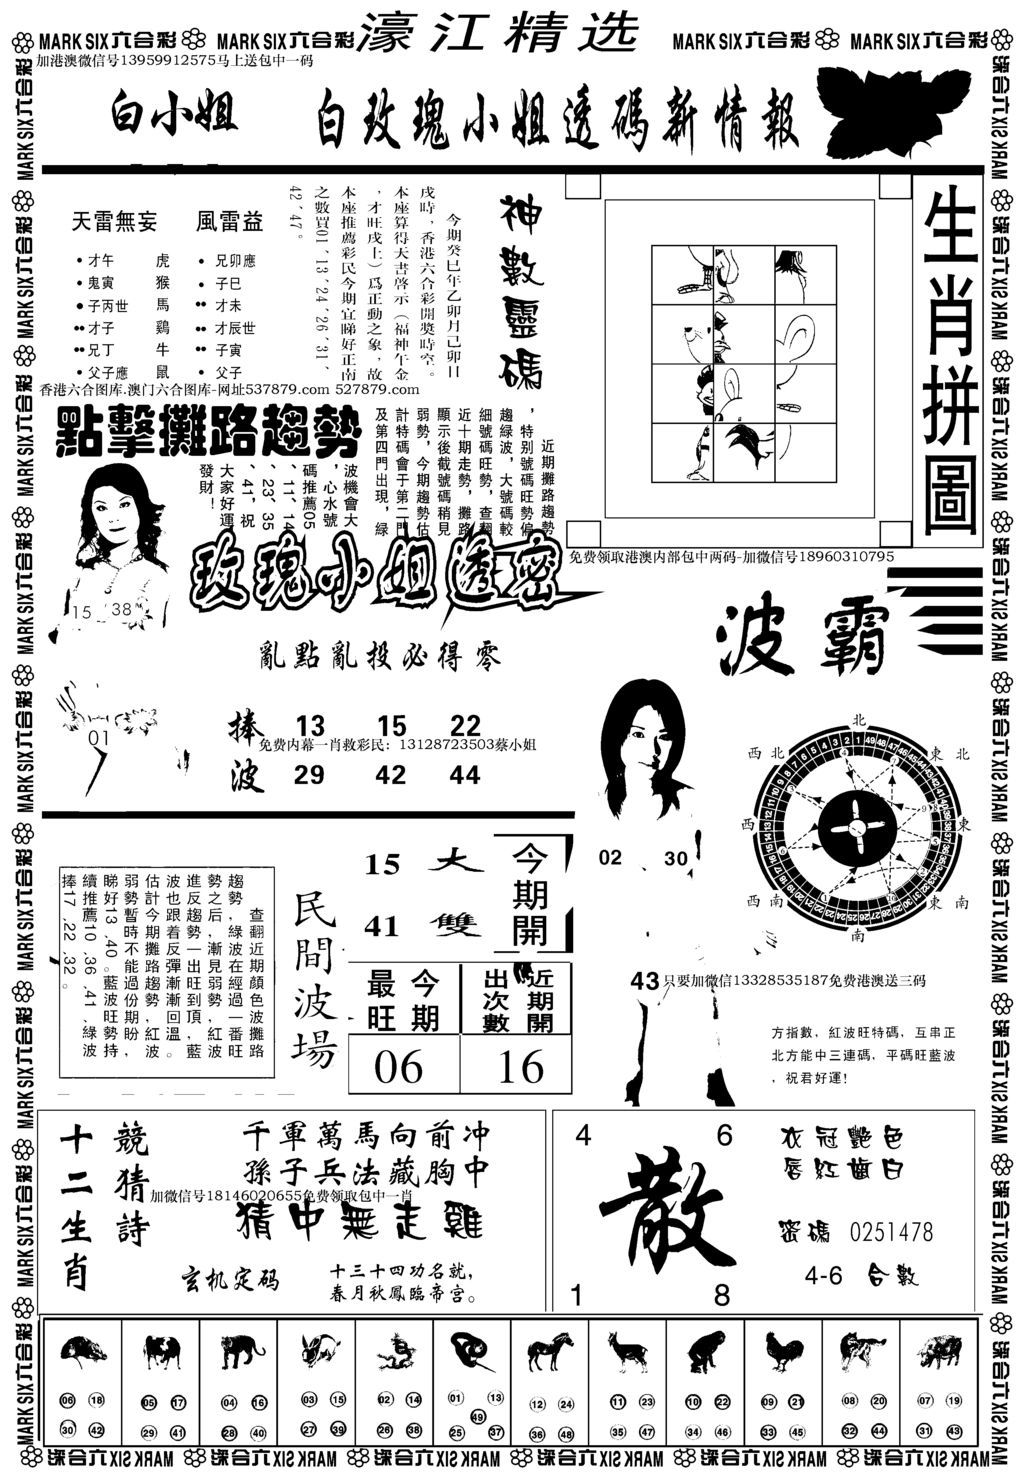 MARK SIX六合彩 MARK SIX六合彩 濠江精选 MARK SIX六合彩 MARK SIX六合彩
加港澳微信号13959912575马上送包中一码
白小姐 白玫瑰小姐透碼新情報
天雷無妄 風雷益
才午 虎 兄卯應
鬼寅 猴 子巳
子丙世 馬 才未
才子 鷄 才辰世
兄丁 牛 子寅
父子應 鼠 父子
神數靈碼
今期癸巳年乙卯月己卯日
戌時，香港六合彩開獎時空。
本座算得天書啓示（福神午金
，才旺戌土）爲正動之象，故
本座推薦彩民今期宜睇好正南
之數買01、13、24、26、31、
42、47。
生肖拼圖
香港六合图库.澳门六合图库-网址537879.com 527879.com
點擊攤路趨勢
近期攤路趨勢
，特别號碼旺勢偏
趨綠波，大號碼較
細號碼旺勢，查翻
近十期走勢，攤路
顯示後截號碼稍見
弱勢，今期趨勢估
計特碼會于第二門
及第四門出現，綠
波機會大
，心水號
碼推薦05
、11、14
、23、35
、41，祝
大家好運
發財！
免费领取港澳内部包中两码-加微信号18960310795
玫瑰小姐透密
15 38
01
亂點亂投必得零
捧 13 15 22
免费内幕一肖救彩民：13128723503蔡小姐
波 29 42 44
波霸
北
西北 東北
西 東
西南 東南
南
02 30
43只要加微信13328535187免费港澳送三码
方指數，紅波旺特碼，互串正
北方能中三連碼，平碼旺藍波
，祝君好運！
查翻近期顏色波攤路
趨勢，綠波在經過一番旺
勢之后，漸見弱勢，紅波
進反趨勢一出到頂，藍波
波也跟着反彈漸旺，回溫。
估計今期攤路趨勢份紅波
弱勢暫時不能過旺期，盼
睇好13、40。藍波勢持
續推薦10、36、41、綠波
捧17、22、32。
民間波場
15 大
41 雙
今期開
今期最旺 近期開出次數
06 16
十二生肖
競猜詩
千軍萬馬向前冲
孫子兵法藏胸中
加微信号18146020655免费领取包中一肖
猜中無走雞
玄机定码
十三十四功名就，
春月秋鳳臨帝宫。
4 6
散
1 8
衣冠艷色
唇紅齒白
密碼 0251478
4-6 合數
06 18 05 17 04 16 03 15 02 14 01 13 12 24 11 23 10 22 09 21 08 20 07 19
49
30 42 29 41 28 40 27 39 26 38 25 37 36 48 35 47 34 46 33 45 32 44 31 43
MARK SIX六合彩 MARK SIX六合彩 MARK SIX六合彩 MARK SIX六合彩 MARK SIX六合彩